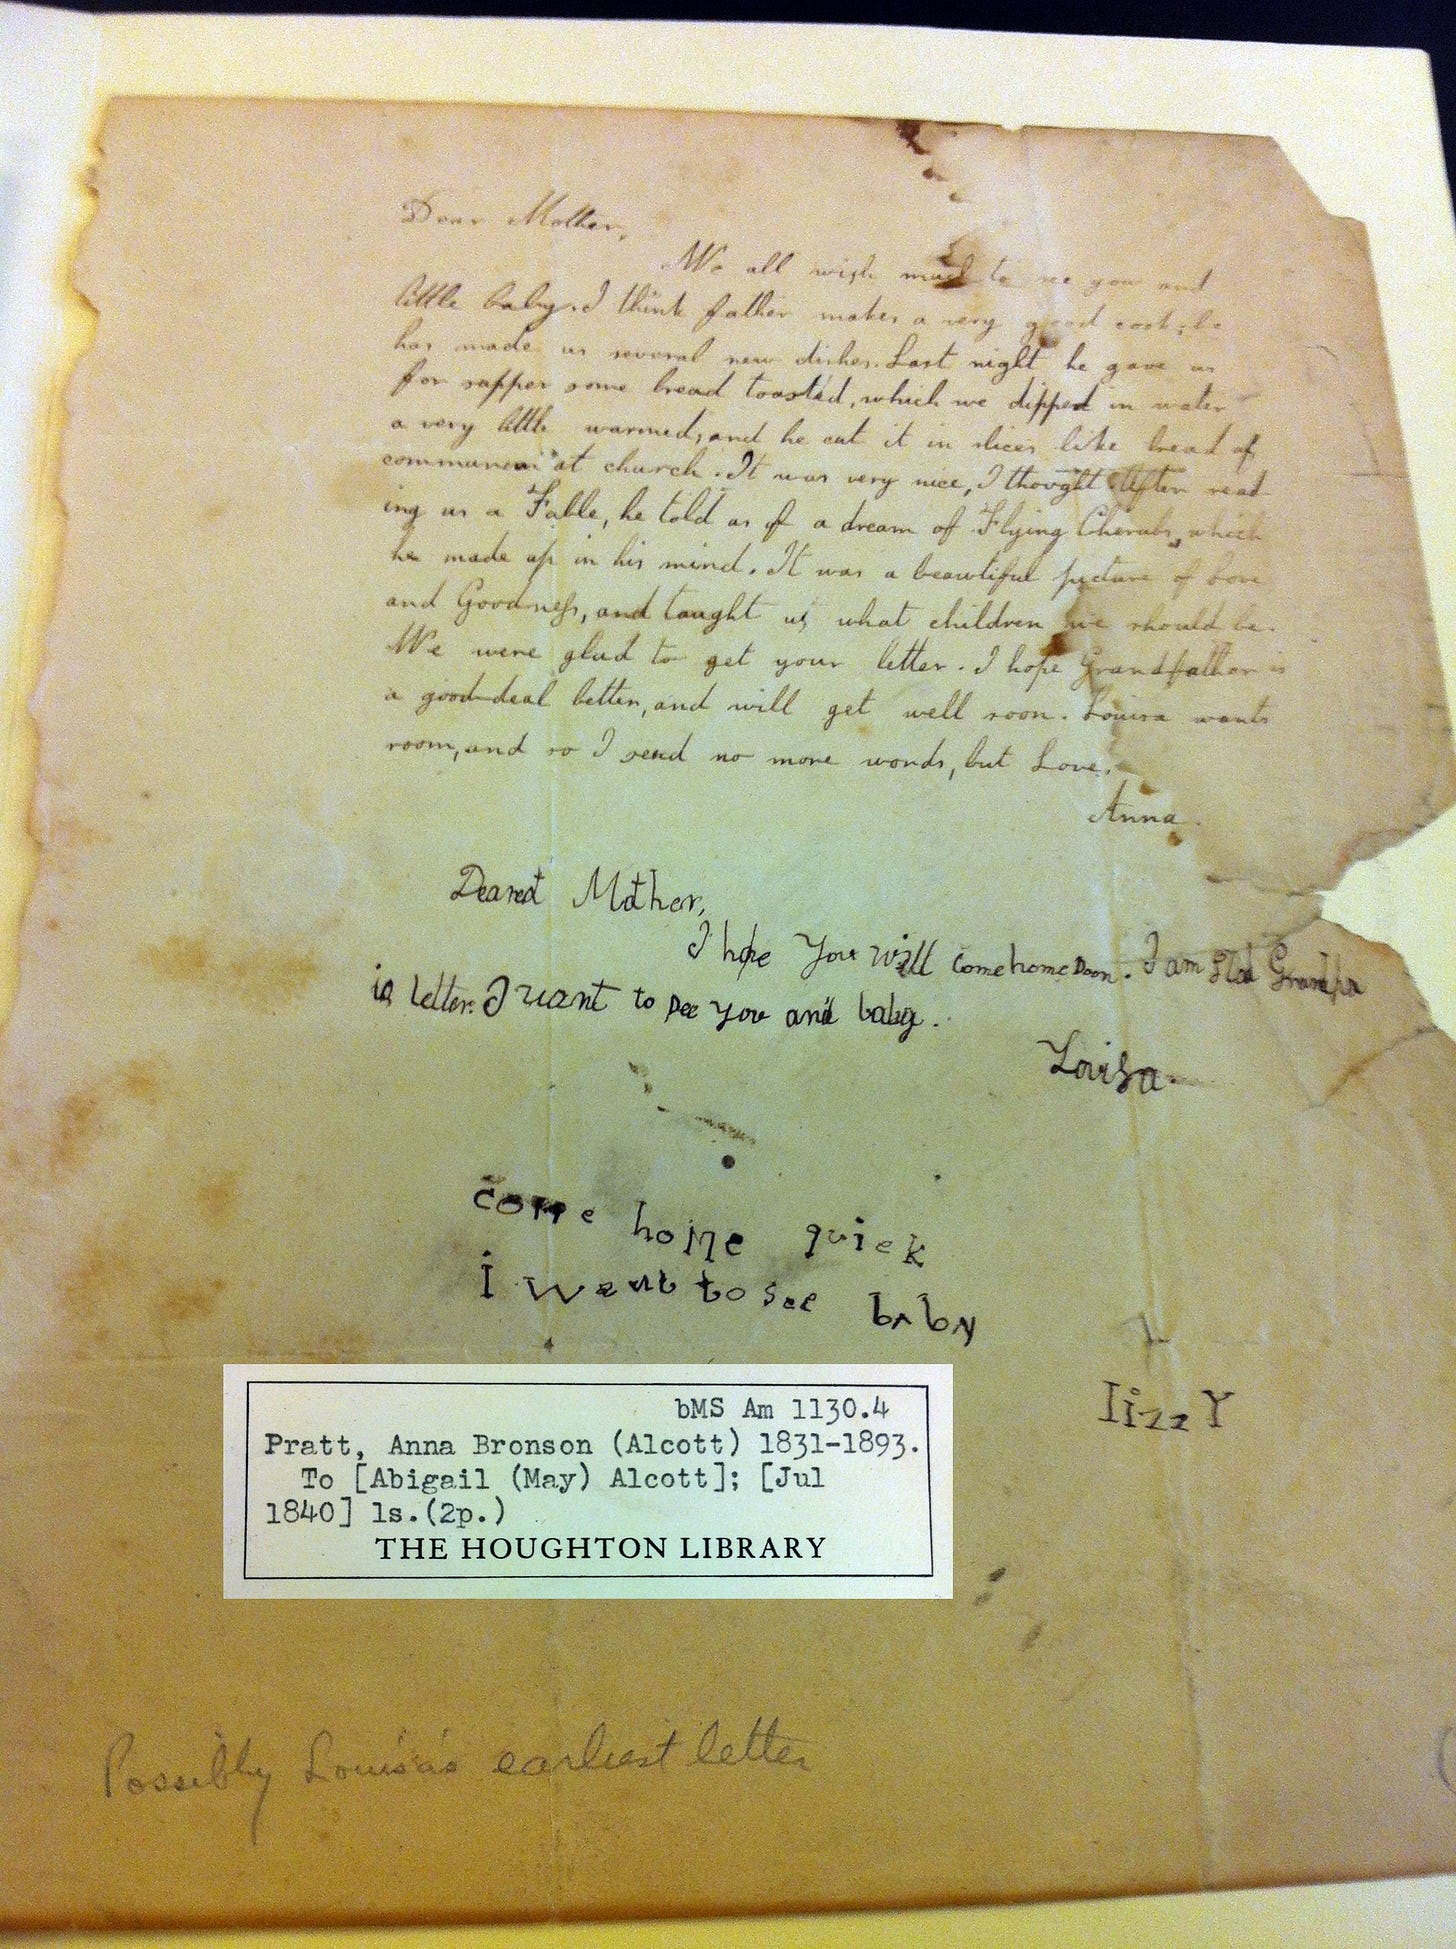 Dear Mother,
We all wish much to see you and
little baby. I think father makes a very good cook; he
has made us several new dishes. Last night he gave us
for supper some bread toasted, which we dipped in water
a very little warmed, and he cut it in slices like bread of
communeon at church. It was very nice, I thought. After read-
ing us a Fable, he told us of a dream of Flying Cherubs, which
he made up in his mind. It was a beautiful picture of Love
and Goodness, and taught us what children we should be.
We were glad to get your letter. I hope Grandfather is
a good deal better, and will get well soon. Louisa wants
room, and so I send no more words, but Love.
Anna.
Dearest Mother,
I hope You will come home soon. I am glad Grandpa
is better. I want to see you and baby.
Louisa.
come home quick
i want to see baby
lizzY
bMS Am 1130.4
Pratt, Anna Bronson (Alcott) 1831-1893.
To [Abigail (May) Alcott]; [Jul
1840] 1s.(2p.)
THE HOUGHTON LIBRARY
Possibly Louisa's earliest letter